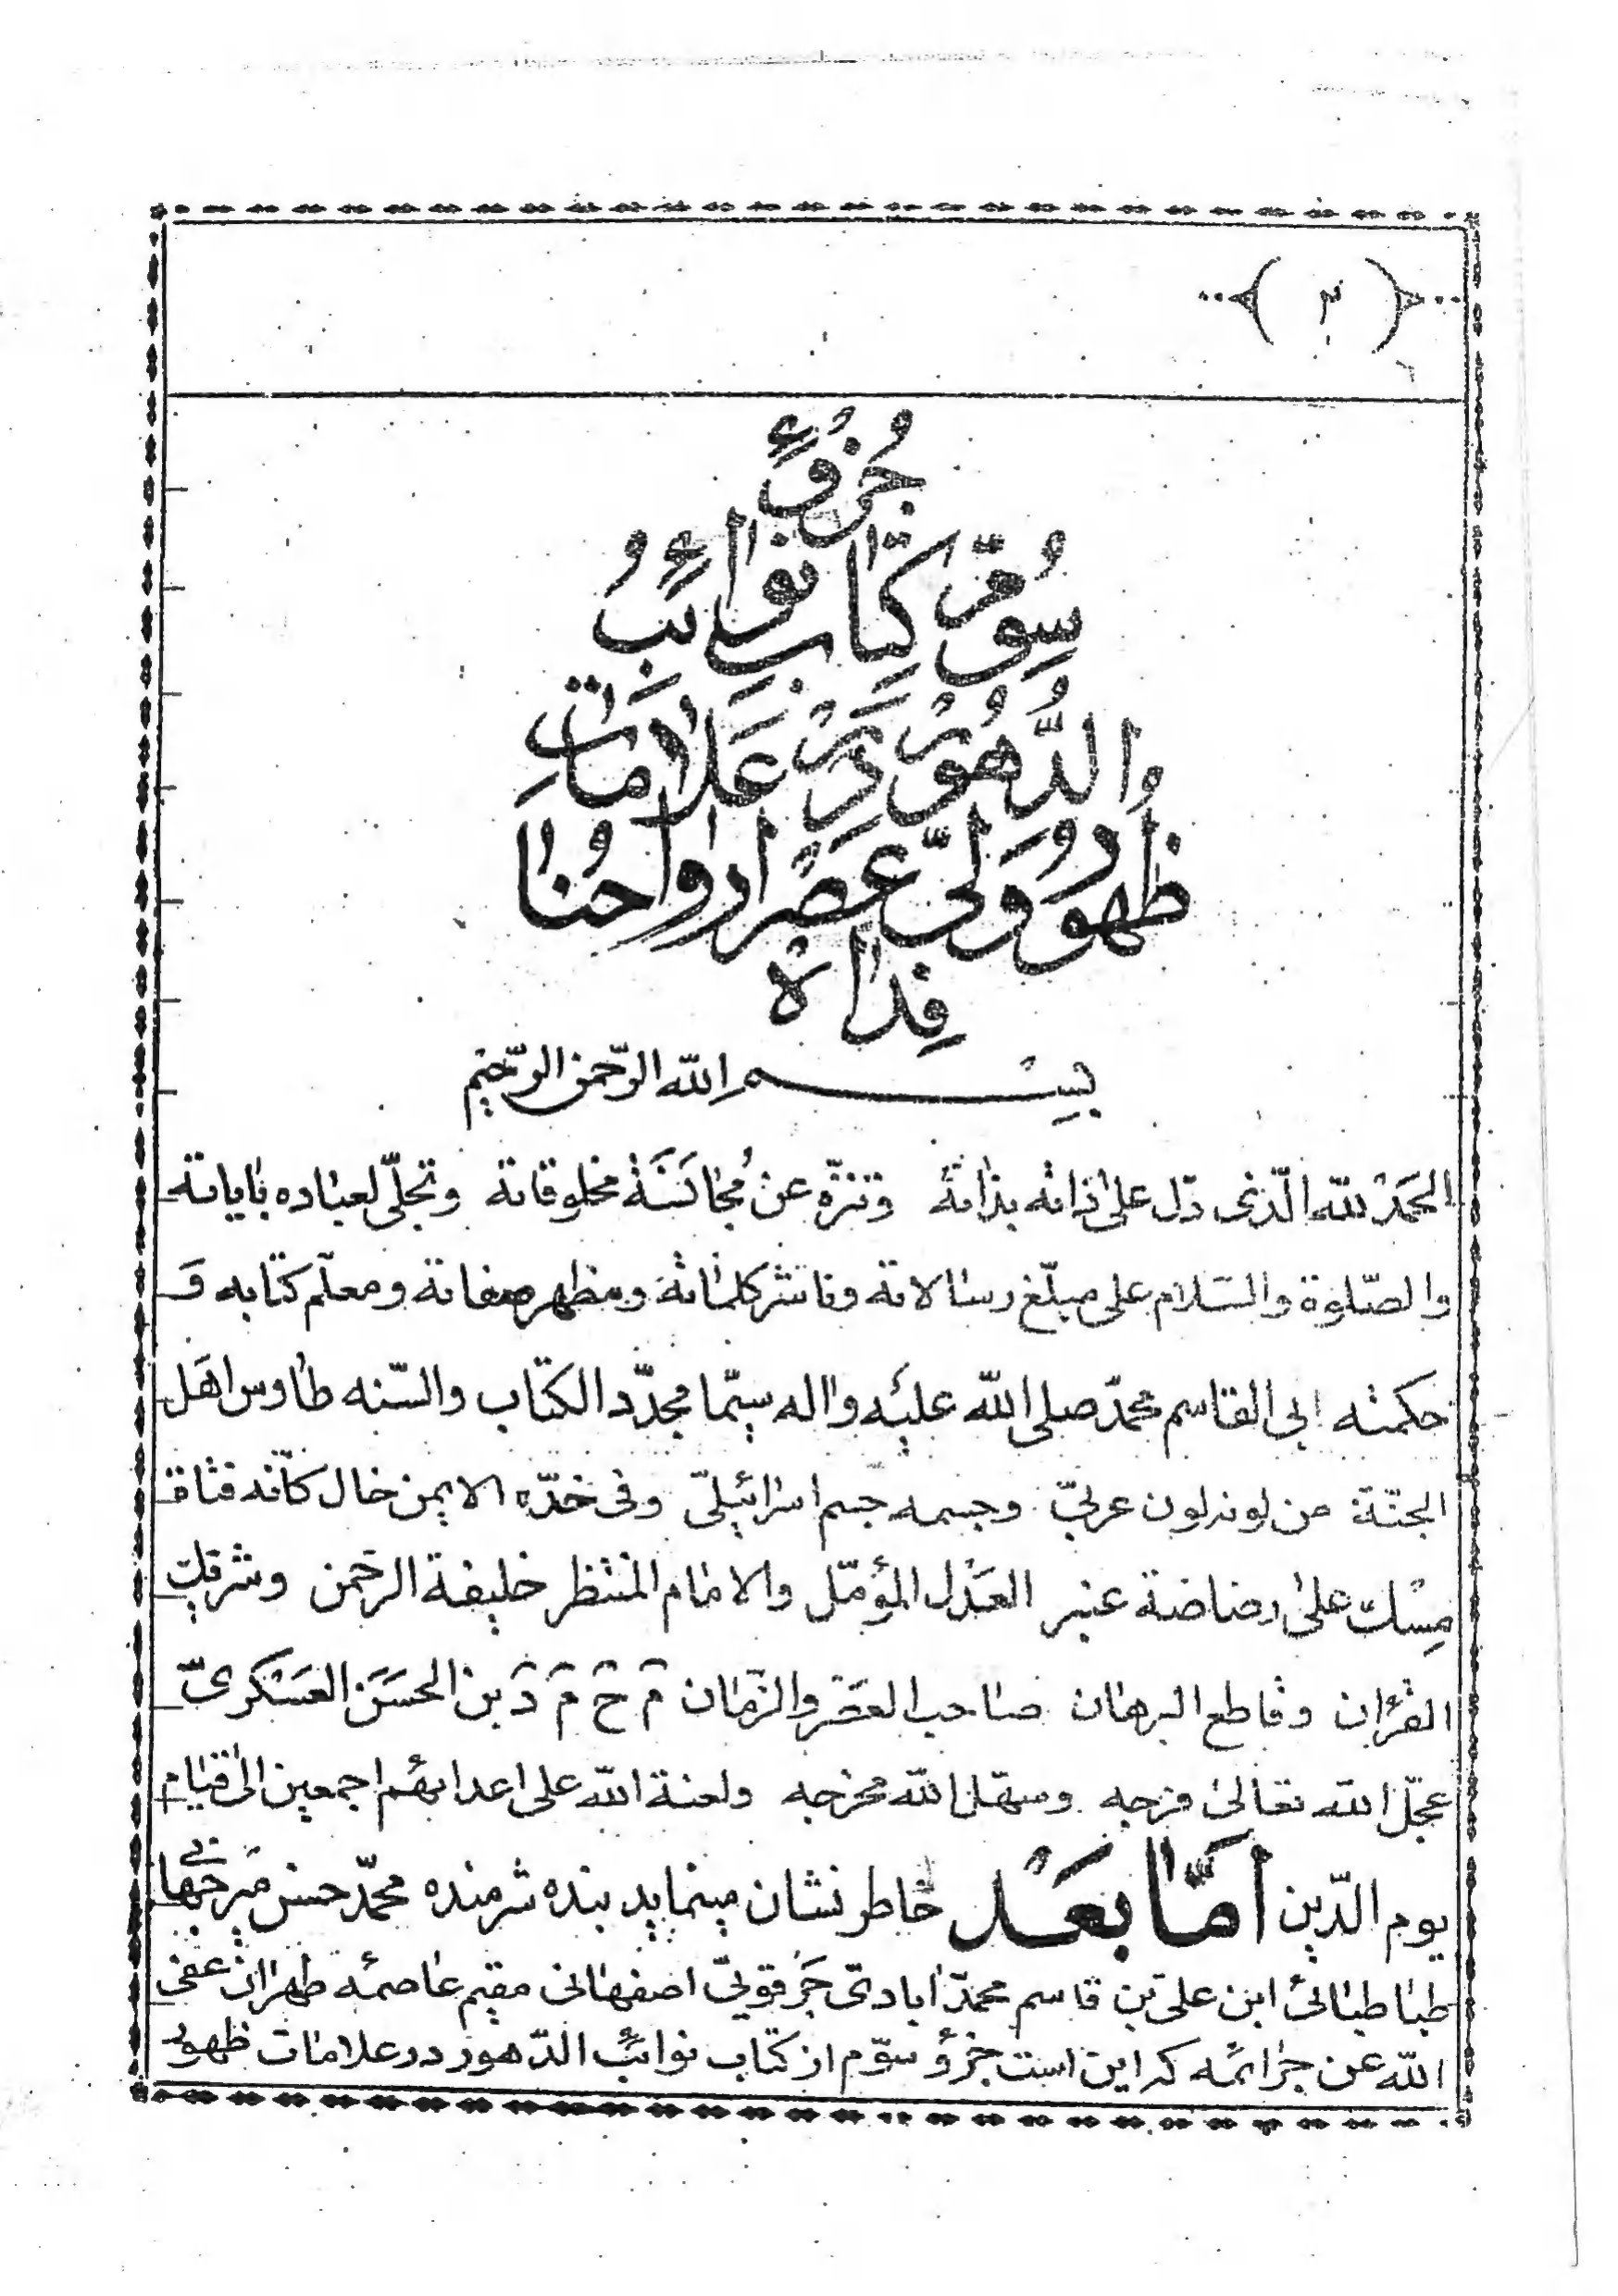 (۳)
جُزوُ
سِوُّم كِتابِ نَوائِبُ
الدُّهُورْ دَرْ عَلاماتِ
ظُهُورِ وَلیِّ عَصْرْ ارواحُنا
فِداهْ
بِسْمِ اللّه الرّحمن الرّحیم
الحَمْدُ للّه الّذی دلّ علی ذاته بذاته وتنزّه عن مُجانَسَة مخلوقاته وتجلّی لعباده بایاته
والصّلوة والسّلام علی مبلّغ رسالاته وناشر کلماته ومظهر صفاته ومعلّم کتابه وَ
حکمته ابی القاسم محمّد صلی اللّه علیه واله سیّما مجدّد الکتاب والسّنه طاوس اهَل
الجنّة من لونه لون عربیّ وجسمه جسم اسرائیلیّ وفی خدّه الایمن خال کانّه فتات
مِسْك علی رضاضة عنبر العَدْل المؤمّل والامام المنتظر خلیفة الرحمن وشریك
القرْان وقاطع البرهان صاحب العَصْر والزّمان مَ حَ مَ دَ بن الحسَن العَسْکریّ
عجّل اللّه تعالی فرجه وسهّل اللّه مخرجه ولعنة اللّه علی اعدائهم اجمعین الی قیام
یوم الدّین امّا بعَد خاطر نشان مینماید بنده شرمنده محمّد حسن میرجهانی
طباطبائی ابن علی بن قاسم محمّد ابادی جَرقویی اصفهانی مقیم عاصمه طهران عفی
اللّه عن جرائمه که این است جزؤ سوّم از کتاب نوائب الدّهور در علامات ظهور